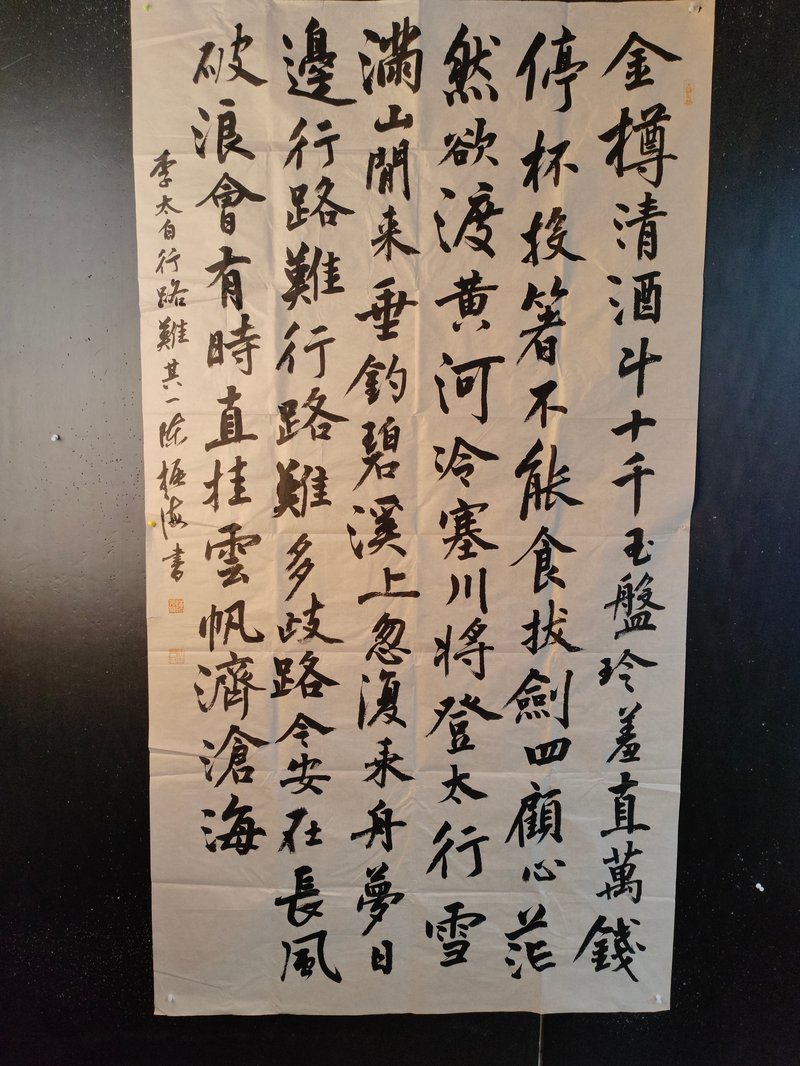 金樽清酒斗十千玉盤玲羞直萬錢
停杯投箸不能食拔劍四顧心茫
然欲渡黄河冷塞川將登太行雪
滿山閒来垂釣碧溪上忽復乘舟夢日
邊行路難行路難多歧路今安在長風
破浪會有時直挂雲帆濟滄海
李太白行路難其一陈海書